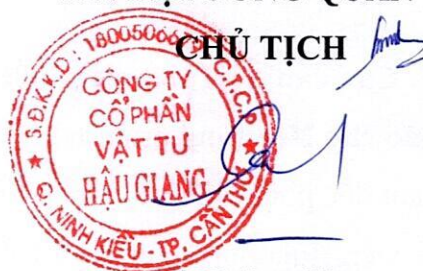 CHỦ TỊCH
S.Đ.K.K.D: 18005066
C.T.C.P
CÔNG TY
CỔ PHẦN
VẬT TƯ
HẬU GIANG
Q. NINH KIỀU - TP. CẦN THƠ